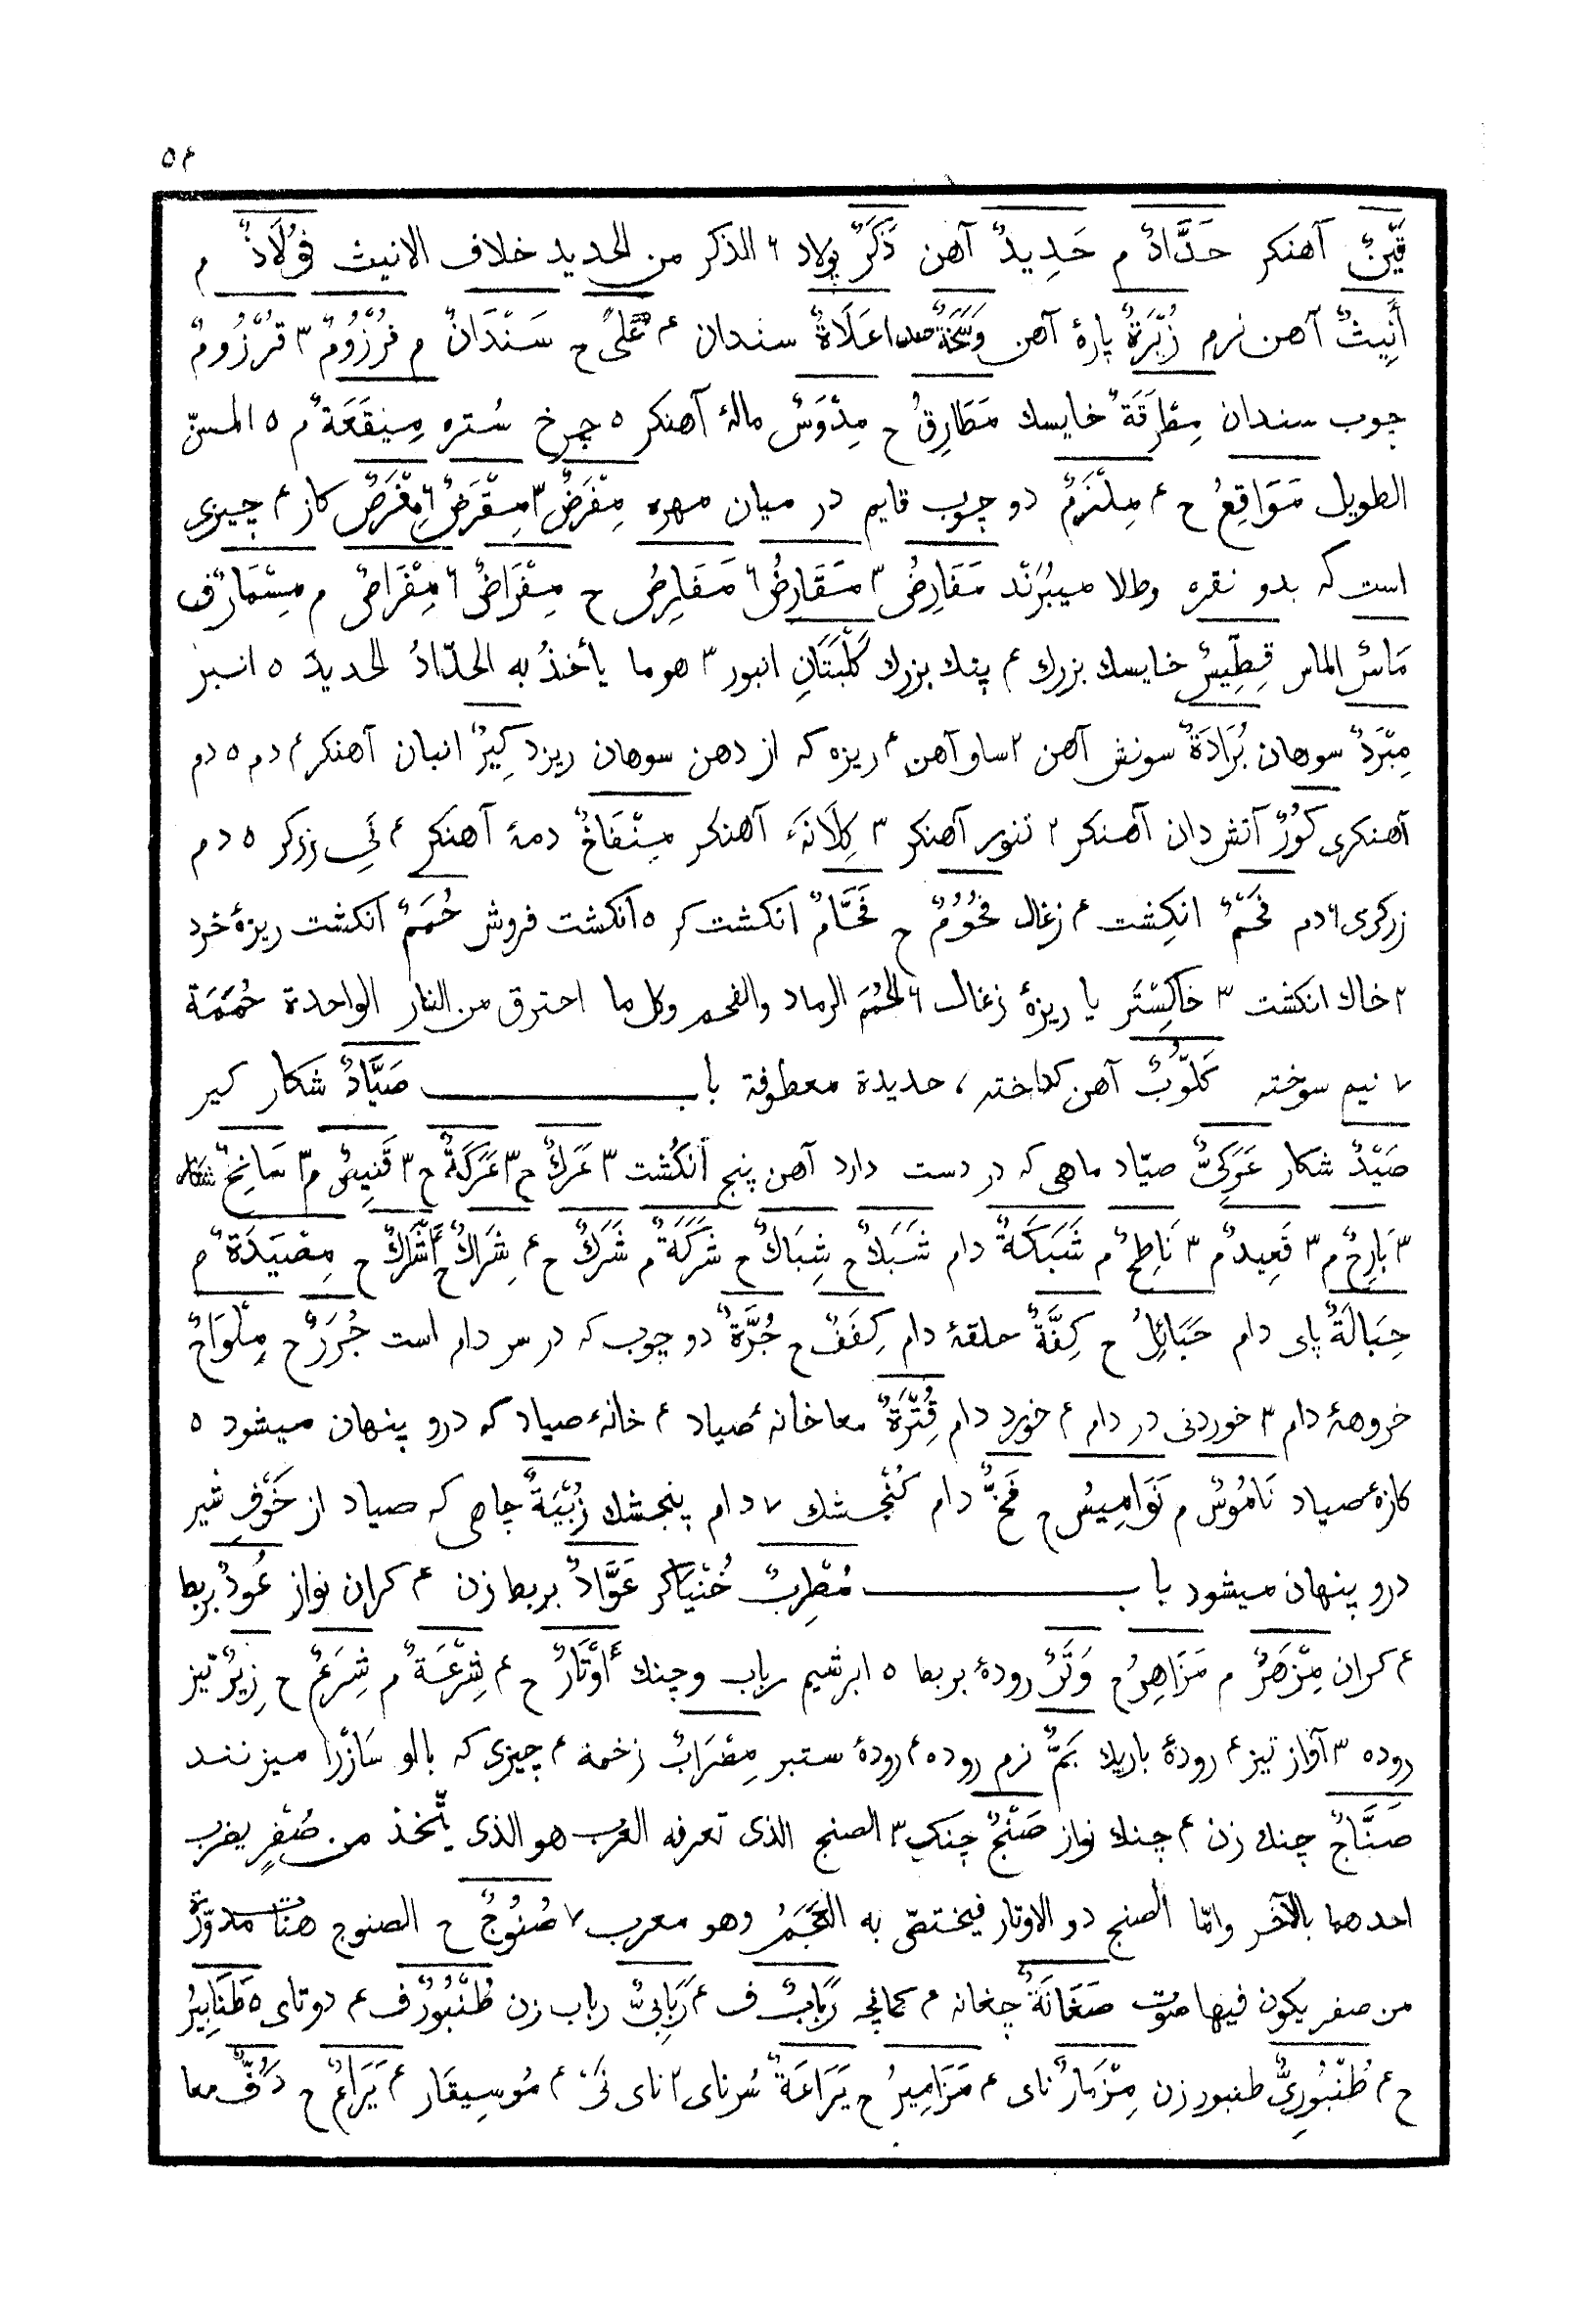 ۵۴
قَيْنٌ آهنكر حَدَّادٌ م حَدِيدٌ آهن ذَكَرٌ پولاد ۶ الذكر من الحديد خلاف الانيث فُولَاذٌ م
أَنِيثٌ آهن نرم زُبْرَةٌ پارهٔ آهن عَلَاةٌ سندان ۴ عَلًى ح سَنْدَانٌ م فُرْزُومٌ ۳ قُرْزُومٌ
چوب سندان مِطْرَقَةٌ خايسك مَطَارِقُ ح مِدْوَسٌ مالهٔ آهنكر ۵ چرخ سُتره مِيقَعَةٌ م ۵ المسنّ
الطويل مَوَاقِعُ ح ۴ مِلْزَمٌ دو چوب قايم در ميان مهره مِفْرَضٌ ۳ مِقْرَضٌ ۶ مِفْرَصٌ كاز ۴ چيزى
است كه بدو نقره وطلا ميبُرَنْد مَفَارِضُ ۳ مَقَارِضُ ۶ مَفَارِصُ ح مِقْرَاضٌ ۶ مِفْرَاصٌ م مِسْمَارٌ ف
مَاسٌ الماس فِطِّيسٌ خايسك بزرك ۴ پتك بزرك كَلْبَتَانِ انبور ۳ هو ما يأخذُ به الحدّادُ الحديدَ ۵ انبز
مِبْرَدٌ سوهان بُرَادَةٌ سونش آهن ۲ ساو آهن ۴ ريزه كه از دهن سوهان ريزد كِيرٌ انبان آهنكر ۴ دم ۵ دم
آهنكرى كُورٌ آتش دان آهنكر ۲ تنور آهنكر ۳ كِلَانَهٔ آهنكر مِنْفَاخٌ دمهٔ آهنكر ۴ نَىِ زركر ۵ دم
زركرى ۶ دم فَحْمٌ انكِشت ۴ زغال فُحُومٌ ح فَحَّامٌ انكشت كر ۵ انكشت فروش حُمَمٌ انكشت ريزهٔ خرد
۲ خاك انكشت ۳ خاكِسْتَر يا ريزهٔ زغال ۶ الحُمَمُ الرماد والفحم وكل ما احترق من النار الواحدة حُمَمَة
۷ نيم سوخته كَلُّوبٌ آهن كداخته، حديدة معطوفة باب صَيَّادٌ شكار كير
صَيْدٌ شكار عَرَكِىٌّ صيّاد ماهى كه در دست دارد آهن پنج أنكُشت ۳ عَرَكٌ ح ۳ عَرَكَةٌ ح ۳ قَنِيصٌ م ۳ سَانِحٌ
۳ بَارِحٌ م ۳ قَعِيدٌ م ۳ نَاطِحٌ م شَبَكَةٌ دام شَبَكٌ ح شِبَاكٌ ح شَرَكَةٌ م شَرَكٌ ح ۴ شِرَاكٌ ح أَشْرَاكٌ ح مِصْيَدَةٌ م
حِبَالَةٌ پاى دام حَبَائِلُ ح كِفَّةٌ حلقهٔ دام كِفَفٌ ح جُرَّةٌ دو چوب كه در سر دام است جُرَرٌ ح مِلْوَاحٌ
خروههٔ دام ۳ خوردنى در دام ۴ خورد دام قُتْرَةٌ معا خانهٔ صياد ۴ خانهٔ صياد كه درو پنهان ميشود ۵
كازهٔ صياد نَامُوسٌ م نَوَامِيسُ ح فَخٌّ دام كُنْجشك ۷ دام پنجشك زُبْيَةٌ چاهى كه صياد از خَوْفِ شير
درو پنهان ميشود باب مُطْرِبٌ خُنْيَاكر عَوَّادٌ بربط زن ۴ كران نواز عُودٌ بربط
۴ كران مِزْهَرٌ م مَزَاهِرُ ح وَتَرٌ رودهٔ بربط ۵ ابرشيم رباب وچنك أَوْتَارٌ ح ۴ شِرْعَةٌ م شِرَعٌ ح زِيرٌ تيز
روده ۳ آواز تيز ۴ رودهٔ باريك بَمٌّ نرم روده ۴ رودهٔ ستبر مِضْرَابٌ زخمه ۴ چيزى كه بالو سَازْرا ميزنند
صَنَّاجٌ چنك زن ۴ چنك نواز صَنْجٌ چنك ۳ الصنج الذى تعرفه العرب هو الذى يتّخذ من صُفْرٍ يضرب
احدهما بالآخر وامّا الصنج ذو الاوتار فيختصّ به العَجَمُ وهو معرب ۷ صُنُوجٌ ح الصنوج هنات مدوّرة
من صفر يكون فيها صوت صَغَانَةٌ چغانه ۴ كمانچه رَبَابٌ ف ۴ رَبَابِىٌّ رباب زن طُنْبُورٌ ف ۴ دوتاى ۵ طَنَابِيرُ
ح ۴ طُنْبُورِىٌّ طنبور زن مِزْمَارٌ ناى ۴ مَزَامِيرُ ح يَرَاعَةٌ سُرناى ۲ ناى نَىْ ۴ مُوسِيقَار ۴ يَرَاعٌ ح دَفٌّ معا